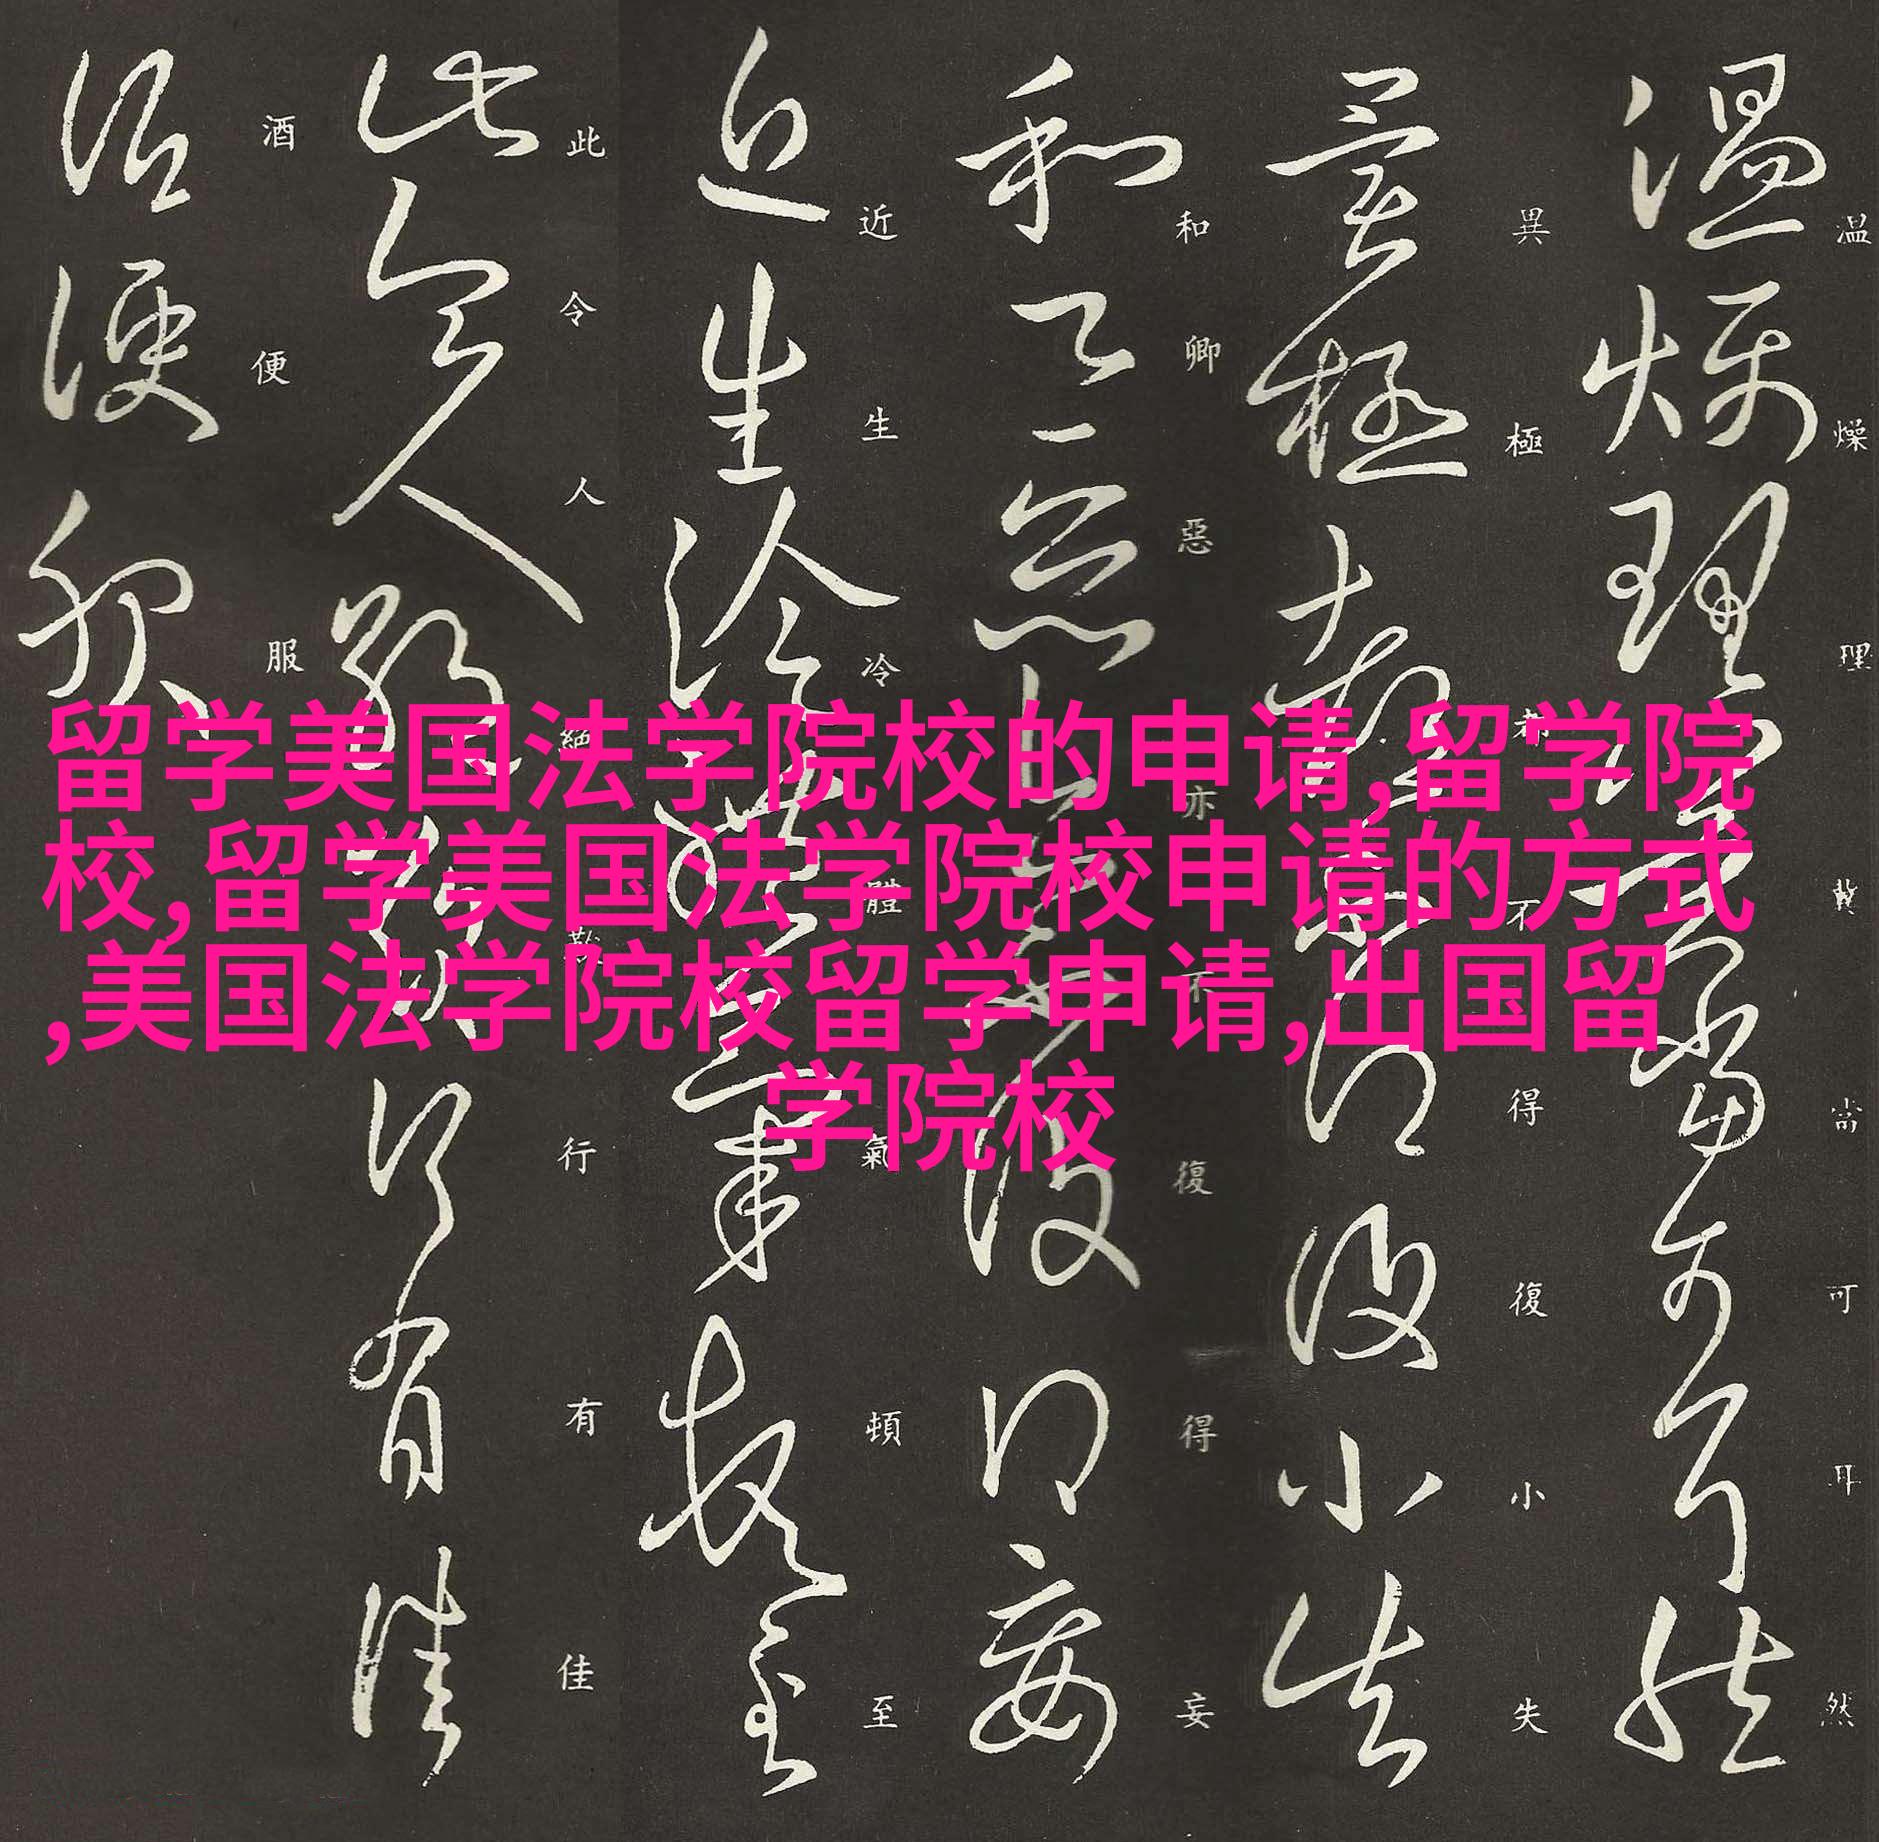 留学美国法学院校的申请,留学院
校,留学美国法学院校申请的方式
,美国法学院校留学申请,出国留
学院校
温燥理冀當可耳然
異極都不得復小失
和卿惡亦不復得妄
近生冷體氣頓至
此令人絕行有佳
酒便服